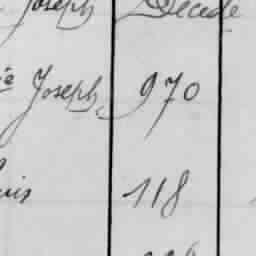 Joseph Décédé
Joseph 970
118